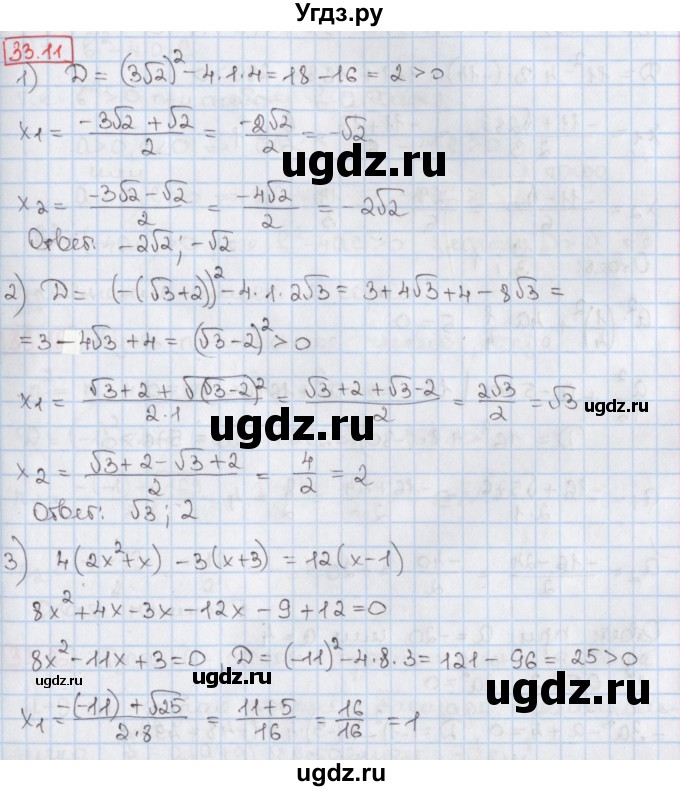 Угдз.ру
33.11
1) D = (3√2)² - 4·1·4 = 18 - 16 = 2 > 0
x1 = (-3√2 + √2)/2 = -2√2/2 = -√2
ugdz.ru
x2 = (-3√2 - √2)/2 = -4√2/2 = -2√2
Ответ: -2√2; -√2
ugdz.ru
2) D = (-(√3+2))² - 4·1·2√3 = 3 + 4√3 + 4 - 8√3 =
= 3 - 4√3 + 4 = (√3 - 2)² > 0
x1 = (√3 + 2 + √(√3-2)²)/(2·1) = (√3 + 2 + √3 - 2)/2 = 2√3/2 = √3
ugdz.ru
ugdz.ru
x2 = (√3 + 2 - √3 + 2)/2 = 4/2 = 2
Ответ: √3; 2
ugdz.ru
3) 4(2x² + x) - 3(x + 3) = 12(x - 1)
8x² + 4x - 3x - 12x - 9 + 12 = 0
8x² - 11x + 3 = 0 , D = (-11)² - 4·8·3 = 121 - 96 = 25 > 0
ugdz.ru
ugdz.ru
x1 = (-(-11) + √25)/(2·8) = (11 + 5)/16 = 16/16 = 1
ugdz.ru